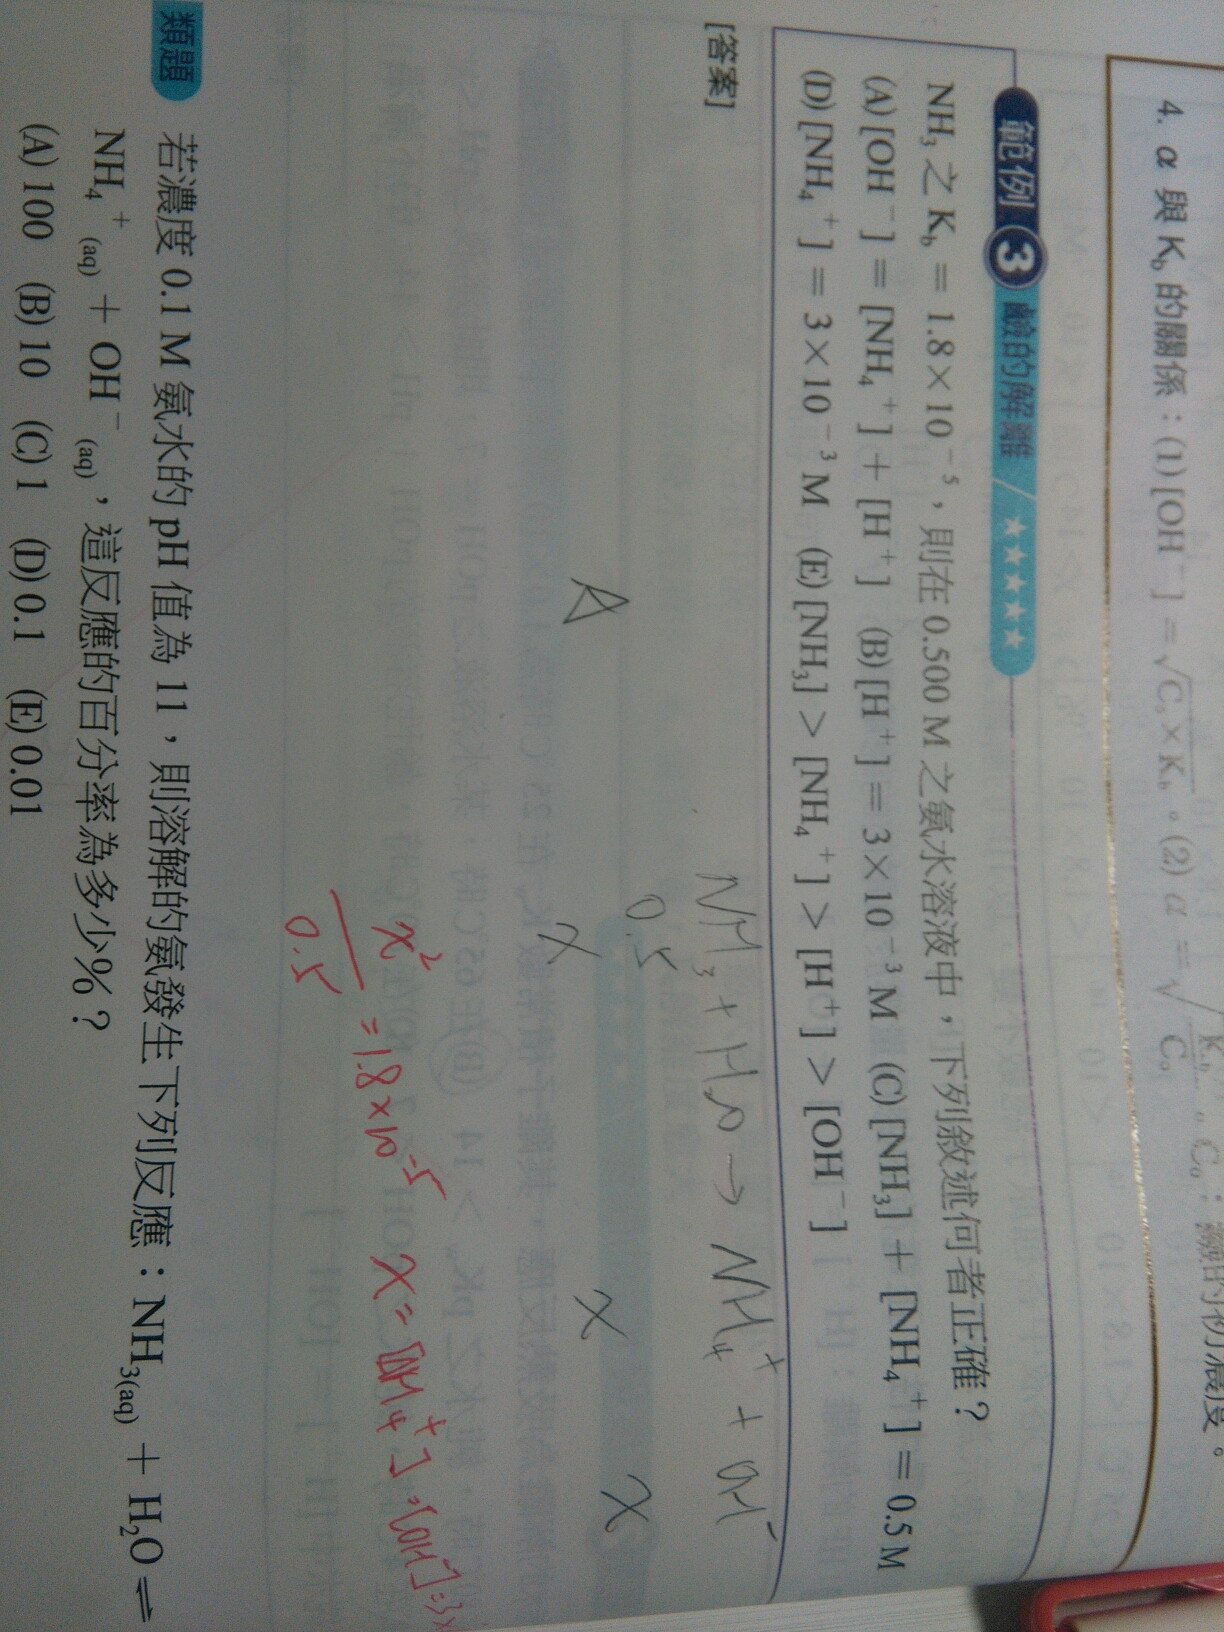 4. α 與 Kb 的關係：(1) [OH⁻] = √C₀ × Kb 。(2) α = √Kb/C₀ 。C₀：鹼的初濃度。
範例 3 鹼的解離 ★★★★★
NH₃ 之 Kb = 1.8 × 10⁻⁵，則在 0.500 M 之氨水溶液中，下列敘述何者正確？
(A) [OH⁻] = [NH₄⁺] + [H⁺] (B) [H⁺] = 3 × 10⁻³ M (C) [NH₃] + [NH₄⁺] = 0.5 M
(D) [NH₄⁺] = 3 × 10⁻³ M (E) [NH₃] > [NH₄⁺] > [H⁺] > [OH⁻]
[答案]
NH₃ + H₂O → NH₄⁺ + OH⁻
0.5
X X X
x²/0.5 = 1.8 × 10⁻⁵ x = [NH₄⁺] = [OH⁻] = 3×
類題 若濃度 0.1 M 氨水的 pH 值為 11，則溶解的氨發生下列反應：NH₃(aq) + H₂O ⇌
NH₄⁺(aq) + OH⁻(aq)，這反應的百分率為多少%？
(A) 100 (B) 10 (C) 1 (D) 0.1 (E) 0.01